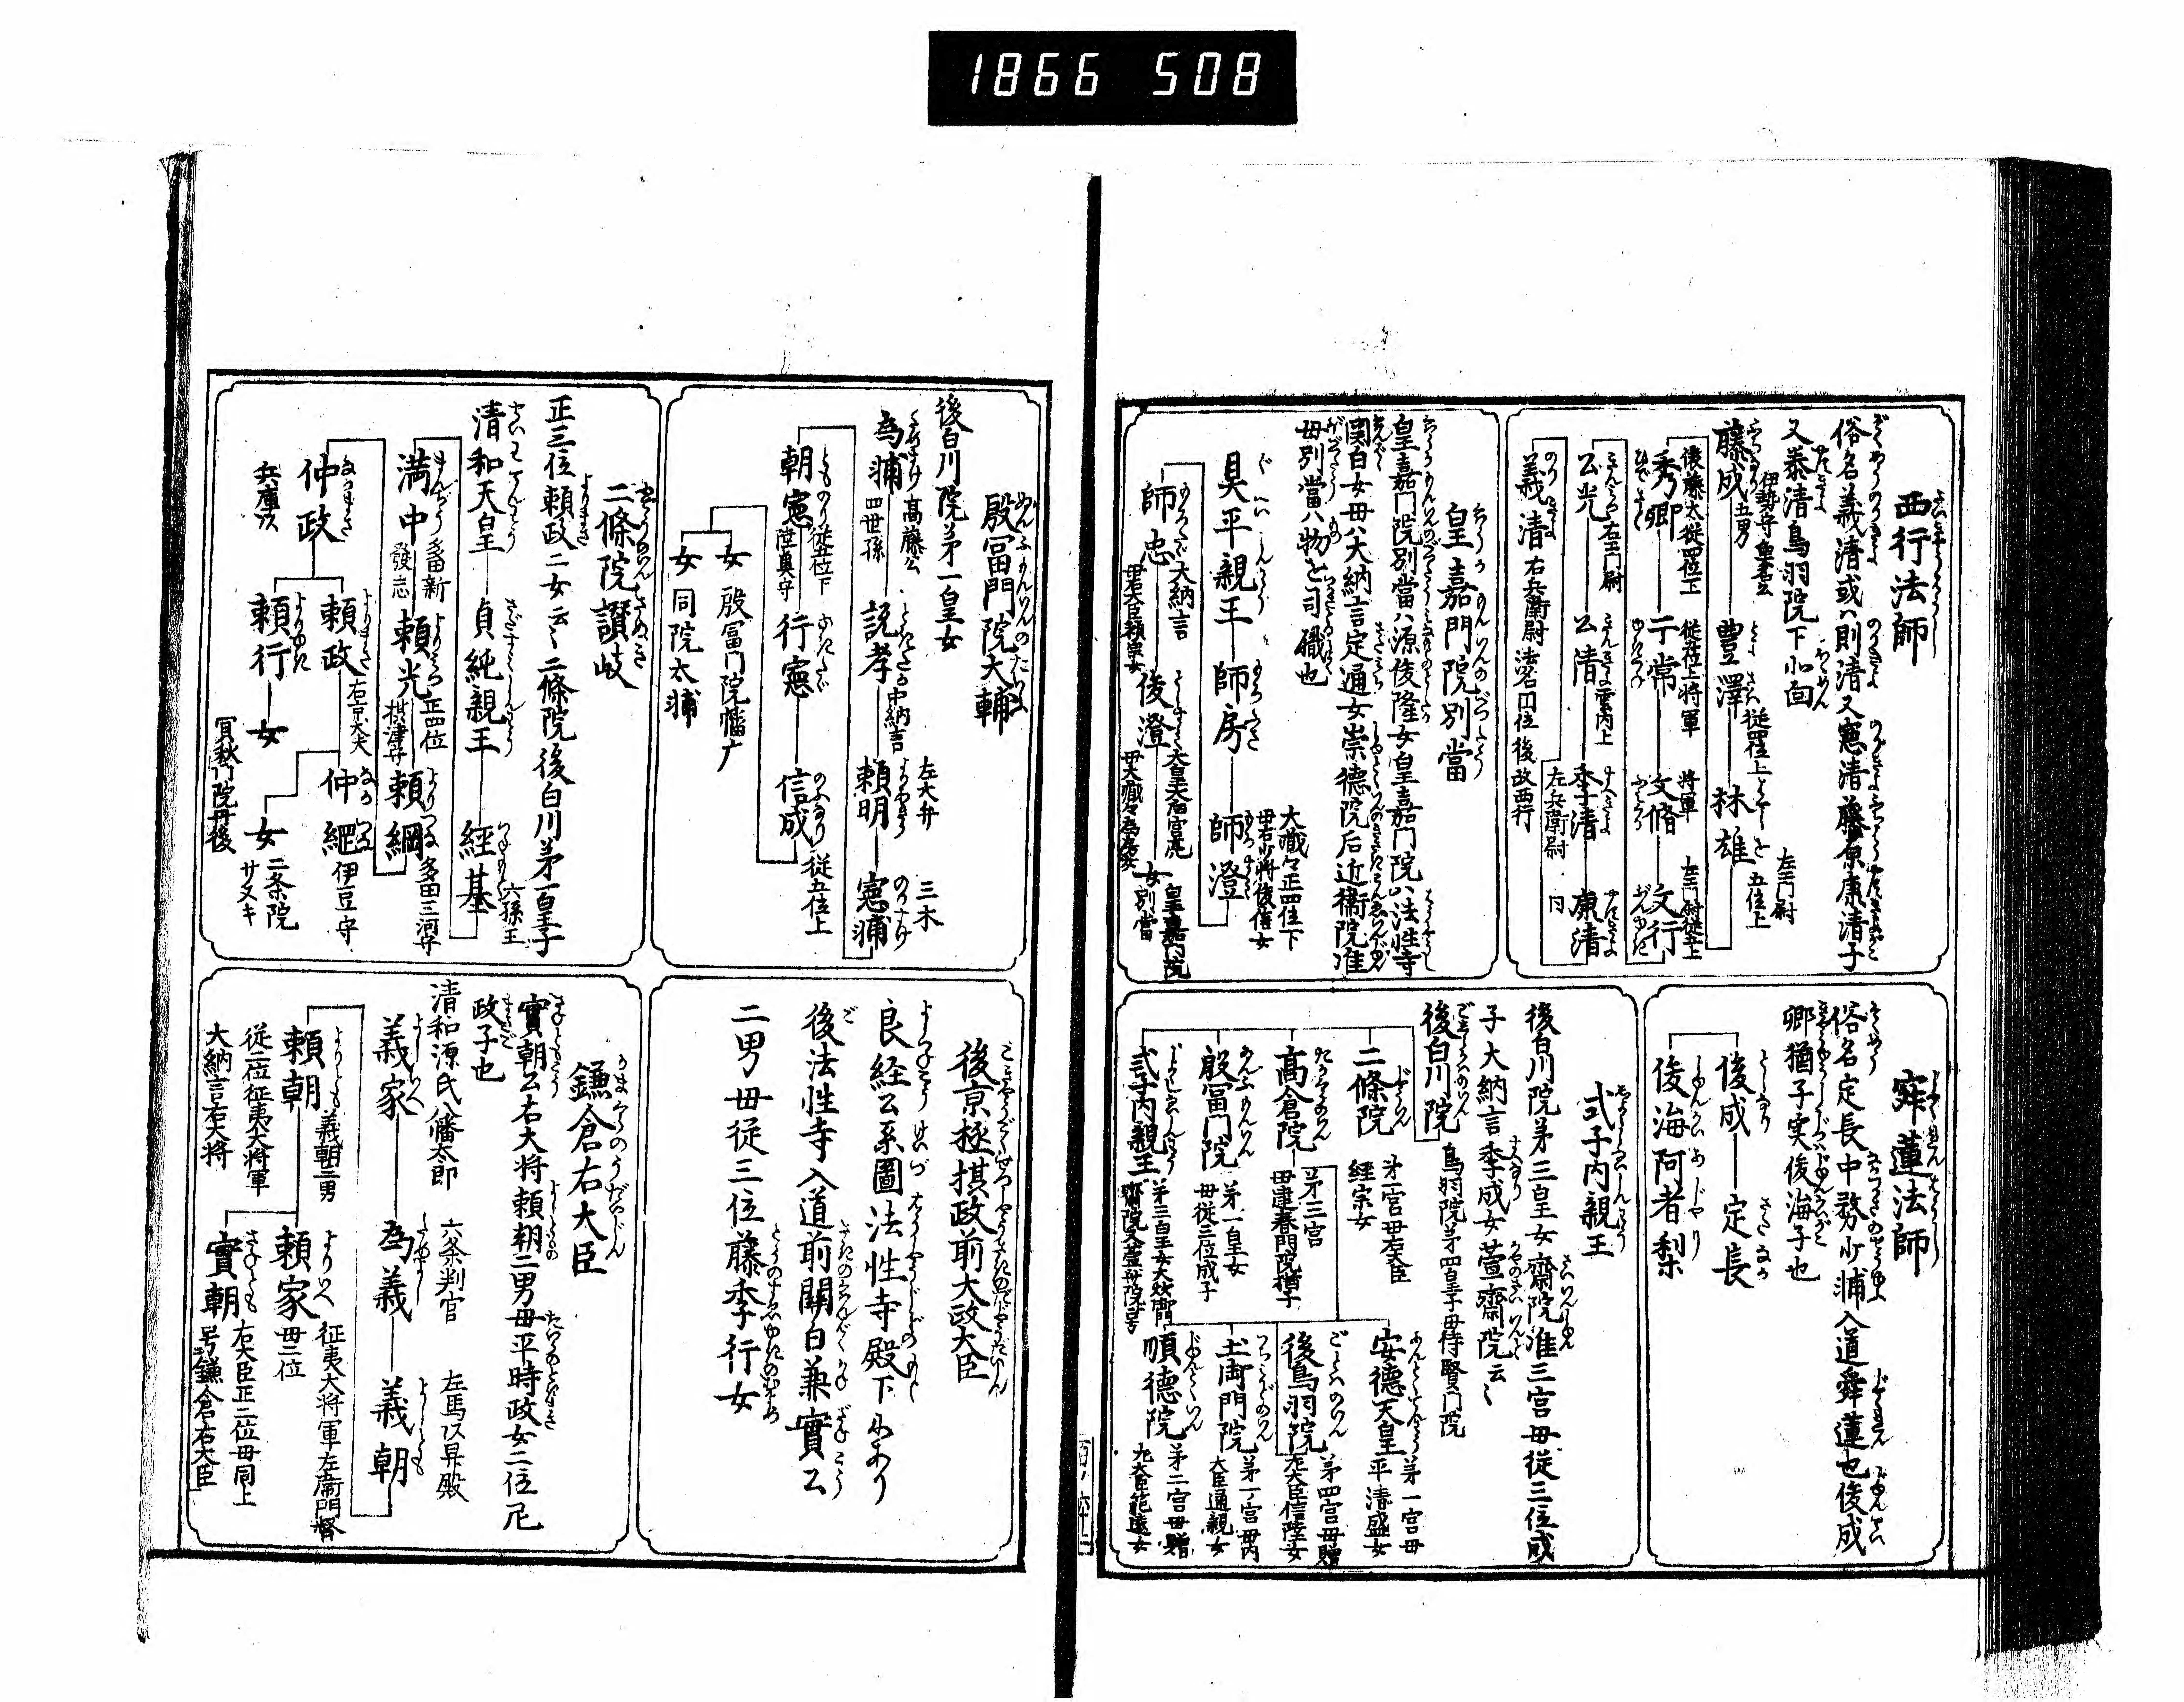 1866 508
西行法師
俗名義清或ハ則清又憲清藤原康清子
又泰清鳥羽院下北面
藤成 伊勢守魚名公五男
豊澤 従四位上
村雄 左衛門尉 五位上
秀郷 俵藤太従四位下
千常 従五位上将軍
文脩 将軍
文行 左衛門尉従五上
公光 右衛門尉
公清
季清 左兵衛尉
康清 同
義清 右兵衛尉法名円位後改西行
寂蓮法師
俗名定長中務少輔入道舜蓮也俊成
卿猶子実俊海子也
俊成
定長
俊海阿者梨
皇嘉門院別當
皇嘉門院別當ハ源俊隆女皇嘉門院ハ法性寺
関白女母ハ大納言定通女崇徳院后近衛院准
母別當ハ物を司る職也
具平親王
師房
師澄 大蔵卿正四位下
師忠 大納言
母右大臣頼宗女
俊澄 太皇太后宮亮
女 皇嘉門院別當
式子内親王
後白川院第三皇女齋院准三宮母従三位成
子大納言季成女萱齋院云〻
後白川院 鳥羽院第四皇子母待賢門院
二條院 第一宮母右大臣経宗女
高倉院 第三宮
母建春門院猶子
殷冨門院 第一皇女
母従三位成子
式子内親王 第三皇女
安徳天皇 第一宮母平清盛女
後鳥羽院 第四宮母贈左大臣信隆女
土御門院 第一宮母内大臣通親女
順徳院 第二宮母贈左大臣範遠女
殷冨門院大輔
後白川院第一皇女
為輔 高藤公四世孫
説孝 中納言
頼明 左大弁
憲輔 三木
朝憲 従五位下陸奥守
行憲
信成 従五位上
女 殷冨門院播广
女 同院太輔
後京極摂政前大政大臣
良経公系圖法性寺殿下にあり
後法性寺入道前關白兼實公
二男母従三位藤季行女
二條院讃岐
正三位頼政二女云〻二條院後白川第一皇子
清和天皇
貞純親王
経基 六孫王
満中 多田新發志
頼光 正四位摂津守
頼綱 多田三河守
仲政 兵庫頭
頼政 右京大夫
頼行
仲綱 伊豆守
女 宜秋門院丹後
女 二条院サヌキ
鎌倉右大臣
實朝公右大将頼朝二男母平時政女二位尼
政子也
清和源氏八幡太郎
義家
為義 六条判官
義朝 左馬頭昇殿
頼朝 義朝三男
従二位征夷大将軍
大納言右大将
頼家 征夷大将軍左衛門督
母二位
實朝 右大臣正二位母同上
号鎌倉右大臣